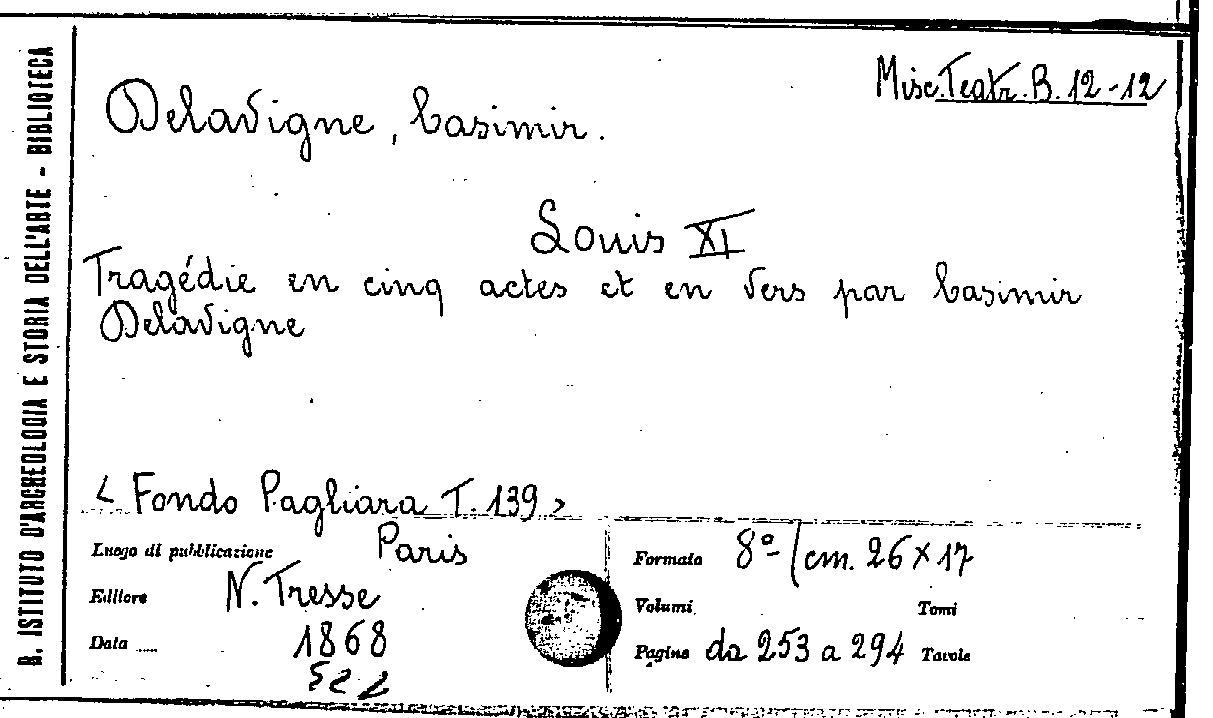 R. ISTITUTO D'ARCHEOLOGIA E STORIA DELL'ARTE - BIBLIOTECA
Misc. Teatr. B. 12-12
Delavigne, Casimir.
Louis XI
Tragédie en cinq actes et en vers par Casimir
Delavigne
< Fondo Pagliara T. 139 >
Luogo di pubblicazione Paris
Editore N. Tresse
Data 1868
Formato 8º (cm. 26 x 17
Volumi Tomi
Pagine da 253 a 294 Tavole